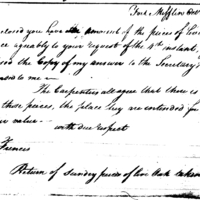 Fort Mifflin Oct
closed you have an amount of the pieces of live
ce agreably to your request of the 4th instant,
and the Copy of my answer to the Secretary's
nd to me —
The Carpenters alleague that there is
those pieces, the place they are contended for
ir value —
with due respect
Frances
Return of Sundry pieces of live Oak taken